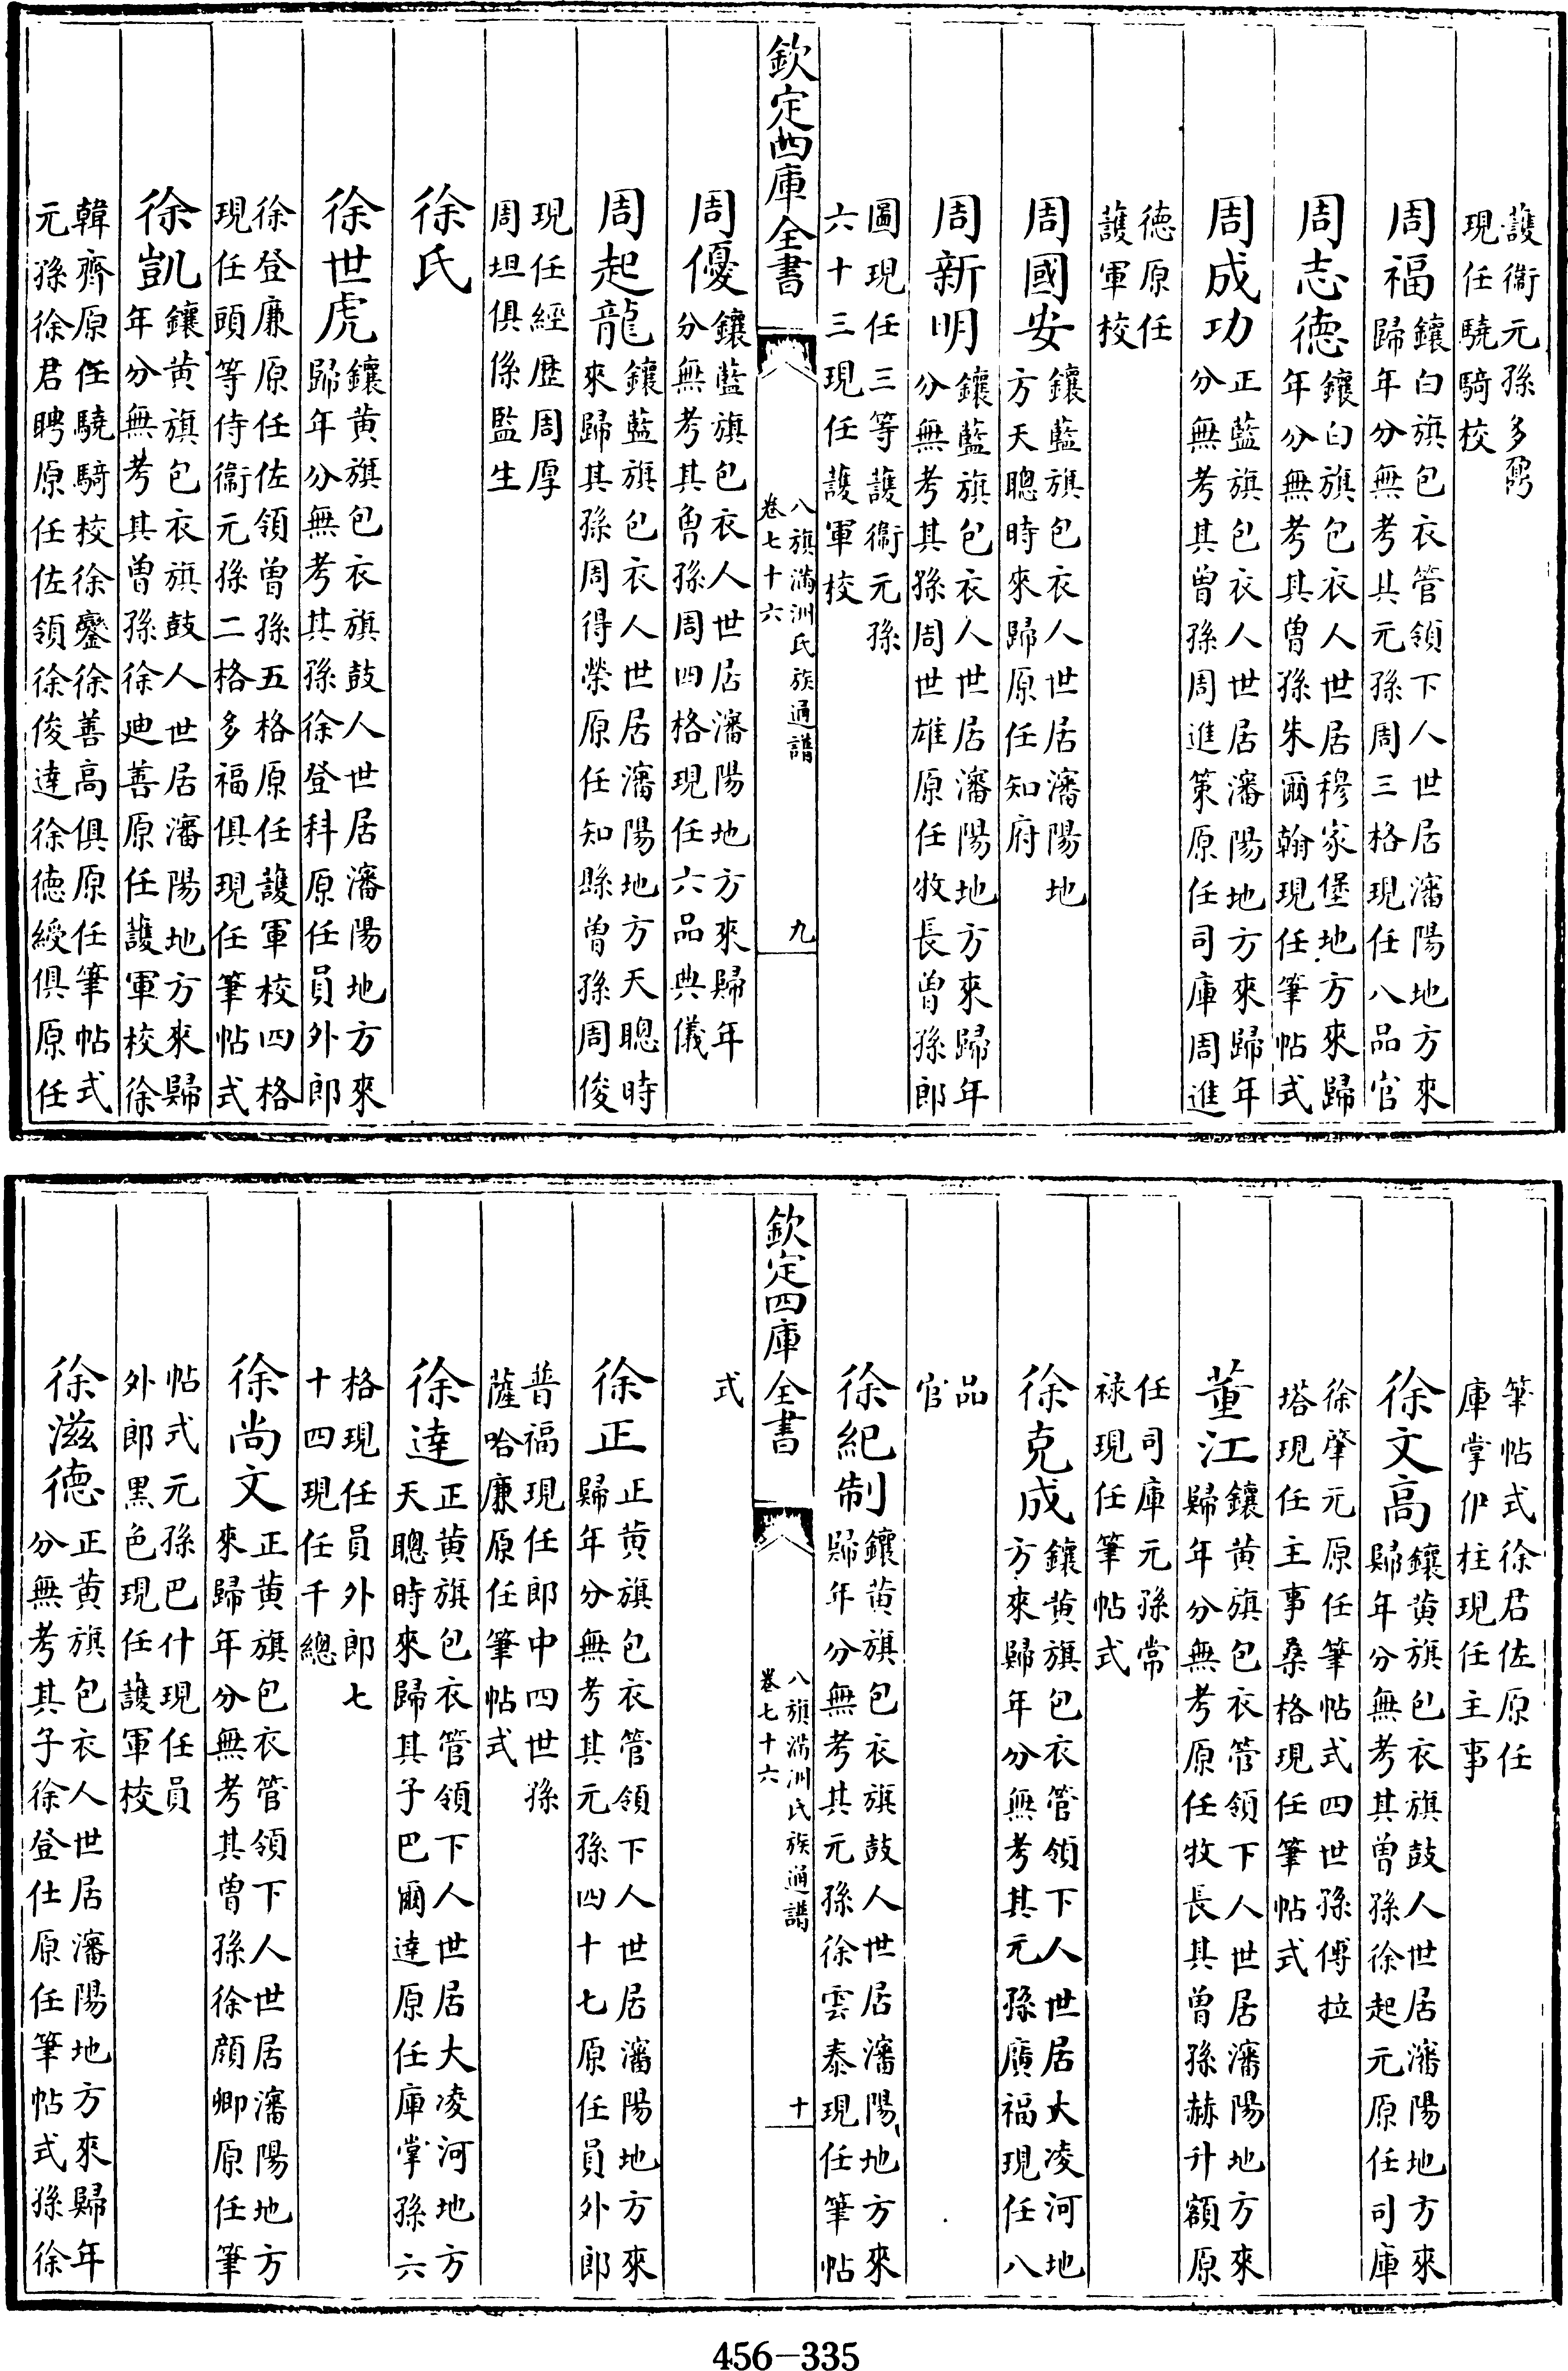 護衛元孫多
現任驍騎校
周福鑲白旗包衣管領下人世居瀋陽地方來
歸年分無考其元孫周三格現任八品官
周志德鑲白旗包衣人世居穆家堡地方來歸
年分無考其曾孫朱爾翰現任筆帖式
周成功正藍旗包衣人世居瀋陽地方來歸年
分無考其曾孫周進策原任司庫周進
德原任
護軍校
周國安鑲藍旗包衣人世居瀋陽地
方天聰時來歸原任知府
周新明鑲藍旗包衣人世居瀋陽地方來歸年
分無考其孫周世雄原任牧長曾孫郎
圖現任三等護衛元孫
六十三現任護軍校
欽定四庫全書
八旗滿洲氏族通譜
卷七十六
九
周優鑲藍旗包衣人世居瀋陽地方來歸年
分無考其曾孫周四格現任六品典儀
周起龍鑲藍旗包衣人世居瀋陽地方天聰時
來歸其孫周得榮原任知縣曾孫周俊
現任經歷周厚
周坦俱係監生
徐氏
徐世虎鑲黃旗包衣旗鼓人世居瀋陽地方來
歸年分無考其孫徐登科原任員外郎
徐登廉原任佐領曾孫五格原任護軍校四格
現任頭等侍衛元孫二格多福俱現任筆帖式
徐凱鑲黃旗包衣旗鼓人世居瀋陽地方來歸
年分無考其曾孫徐廸善原任護軍校徐
韓齊原任驍騎校徐鑾徐善高俱原任筆帖式
元孫徐君聘原任佐領徐俊達徐德綬俱原任
筆帖式徐君佐原任
庫掌伊柱現任主事
徐文高鑲黃旗包衣旗鼓人世居瀋陽地方來
歸年分無考其曾孫徐起元原任司庫
徐肇元原任筆帖式四世孫傅拉
塔現任主事桑格現任筆帖式
董江鑲黃旗包衣管領下人世居瀋陽地方來
歸年分無考原任牧長其曾孫赫升額原
任司庫元孫常
祿現任筆帖式
徐克成鑲黃旗包衣管領下人世居大凌河地
方來歸年分無考其元孫廣福現任八
品
官
徐紀制鑲黃旗包衣旗鼓人世居瀋陽地方來
歸年分無考其元孫徐雲泰現任筆帖
欽定四庫全書
八旗滿洲氏族通譜
卷七十六
十
式
徐正正黃旗包衣管領下人世居瀋陽地方來
歸年分無考其元孫四十七原任員外郎
普福現任郎中四世孫
薩哈廉原任筆帖式
徐達正黃旗包衣管領下人世居大凌河地方
天聰時來歸其子巴爾達原任庫掌孫六
格現任員外郎七
十四現任千總
徐尚文正黃旗包衣管領下人世居瀋陽地方
來歸年分無考其曾孫徐顔卿原任筆
帖式元孫巴什現任員
外郎黑色現任護軍校
徐滋德正黃旗包衣人世居瀋陽地方來歸年
分無考其子徐登仕原任筆帖式孫徐
456-335